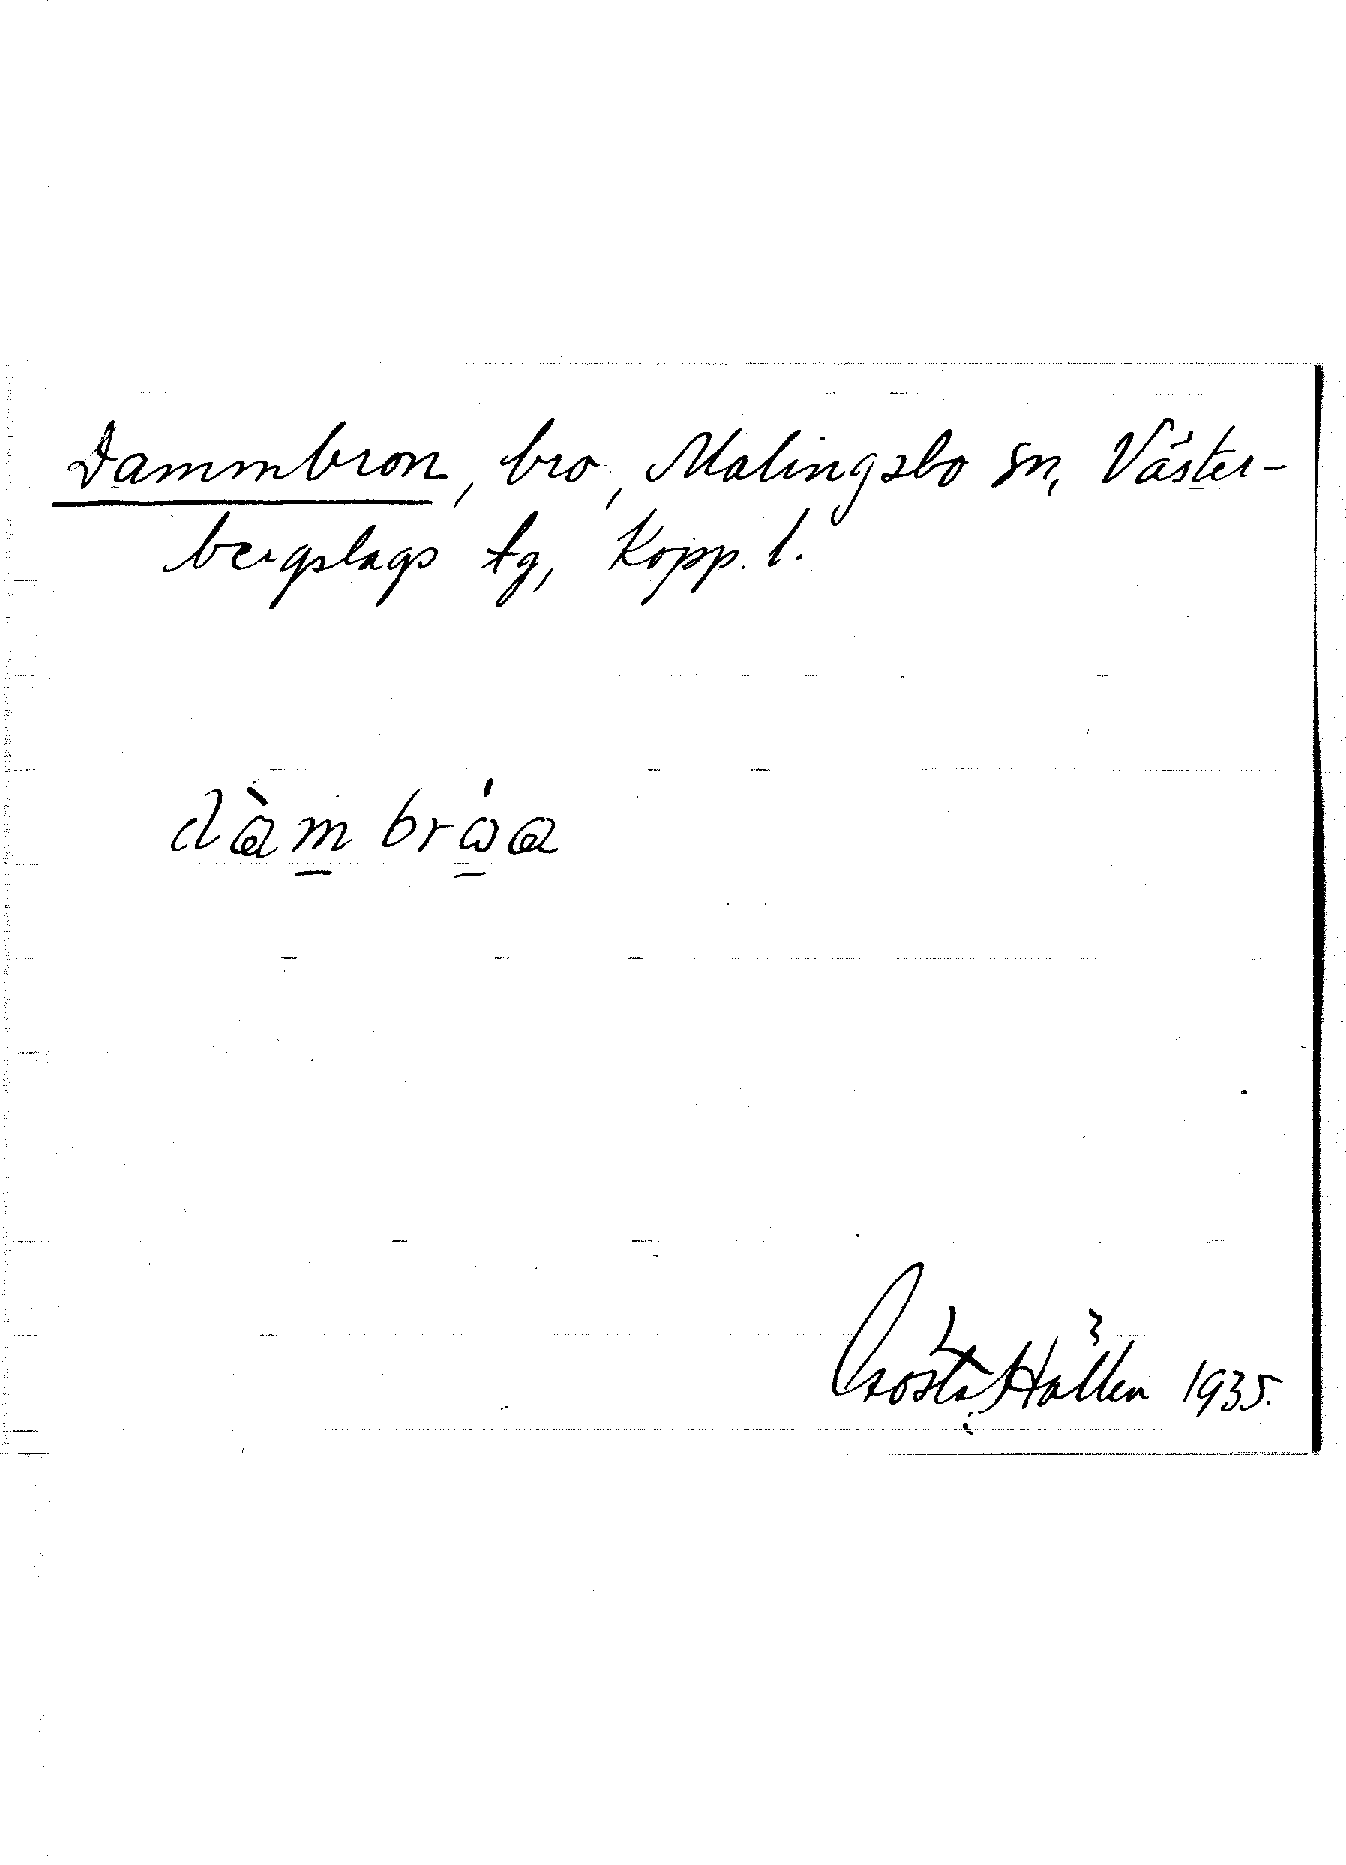 Dammbron, bro, Malingsbo sn, Väster-
bergslags tg, Kopp. l.
dàm bróa
Gösta Hallen 1935.